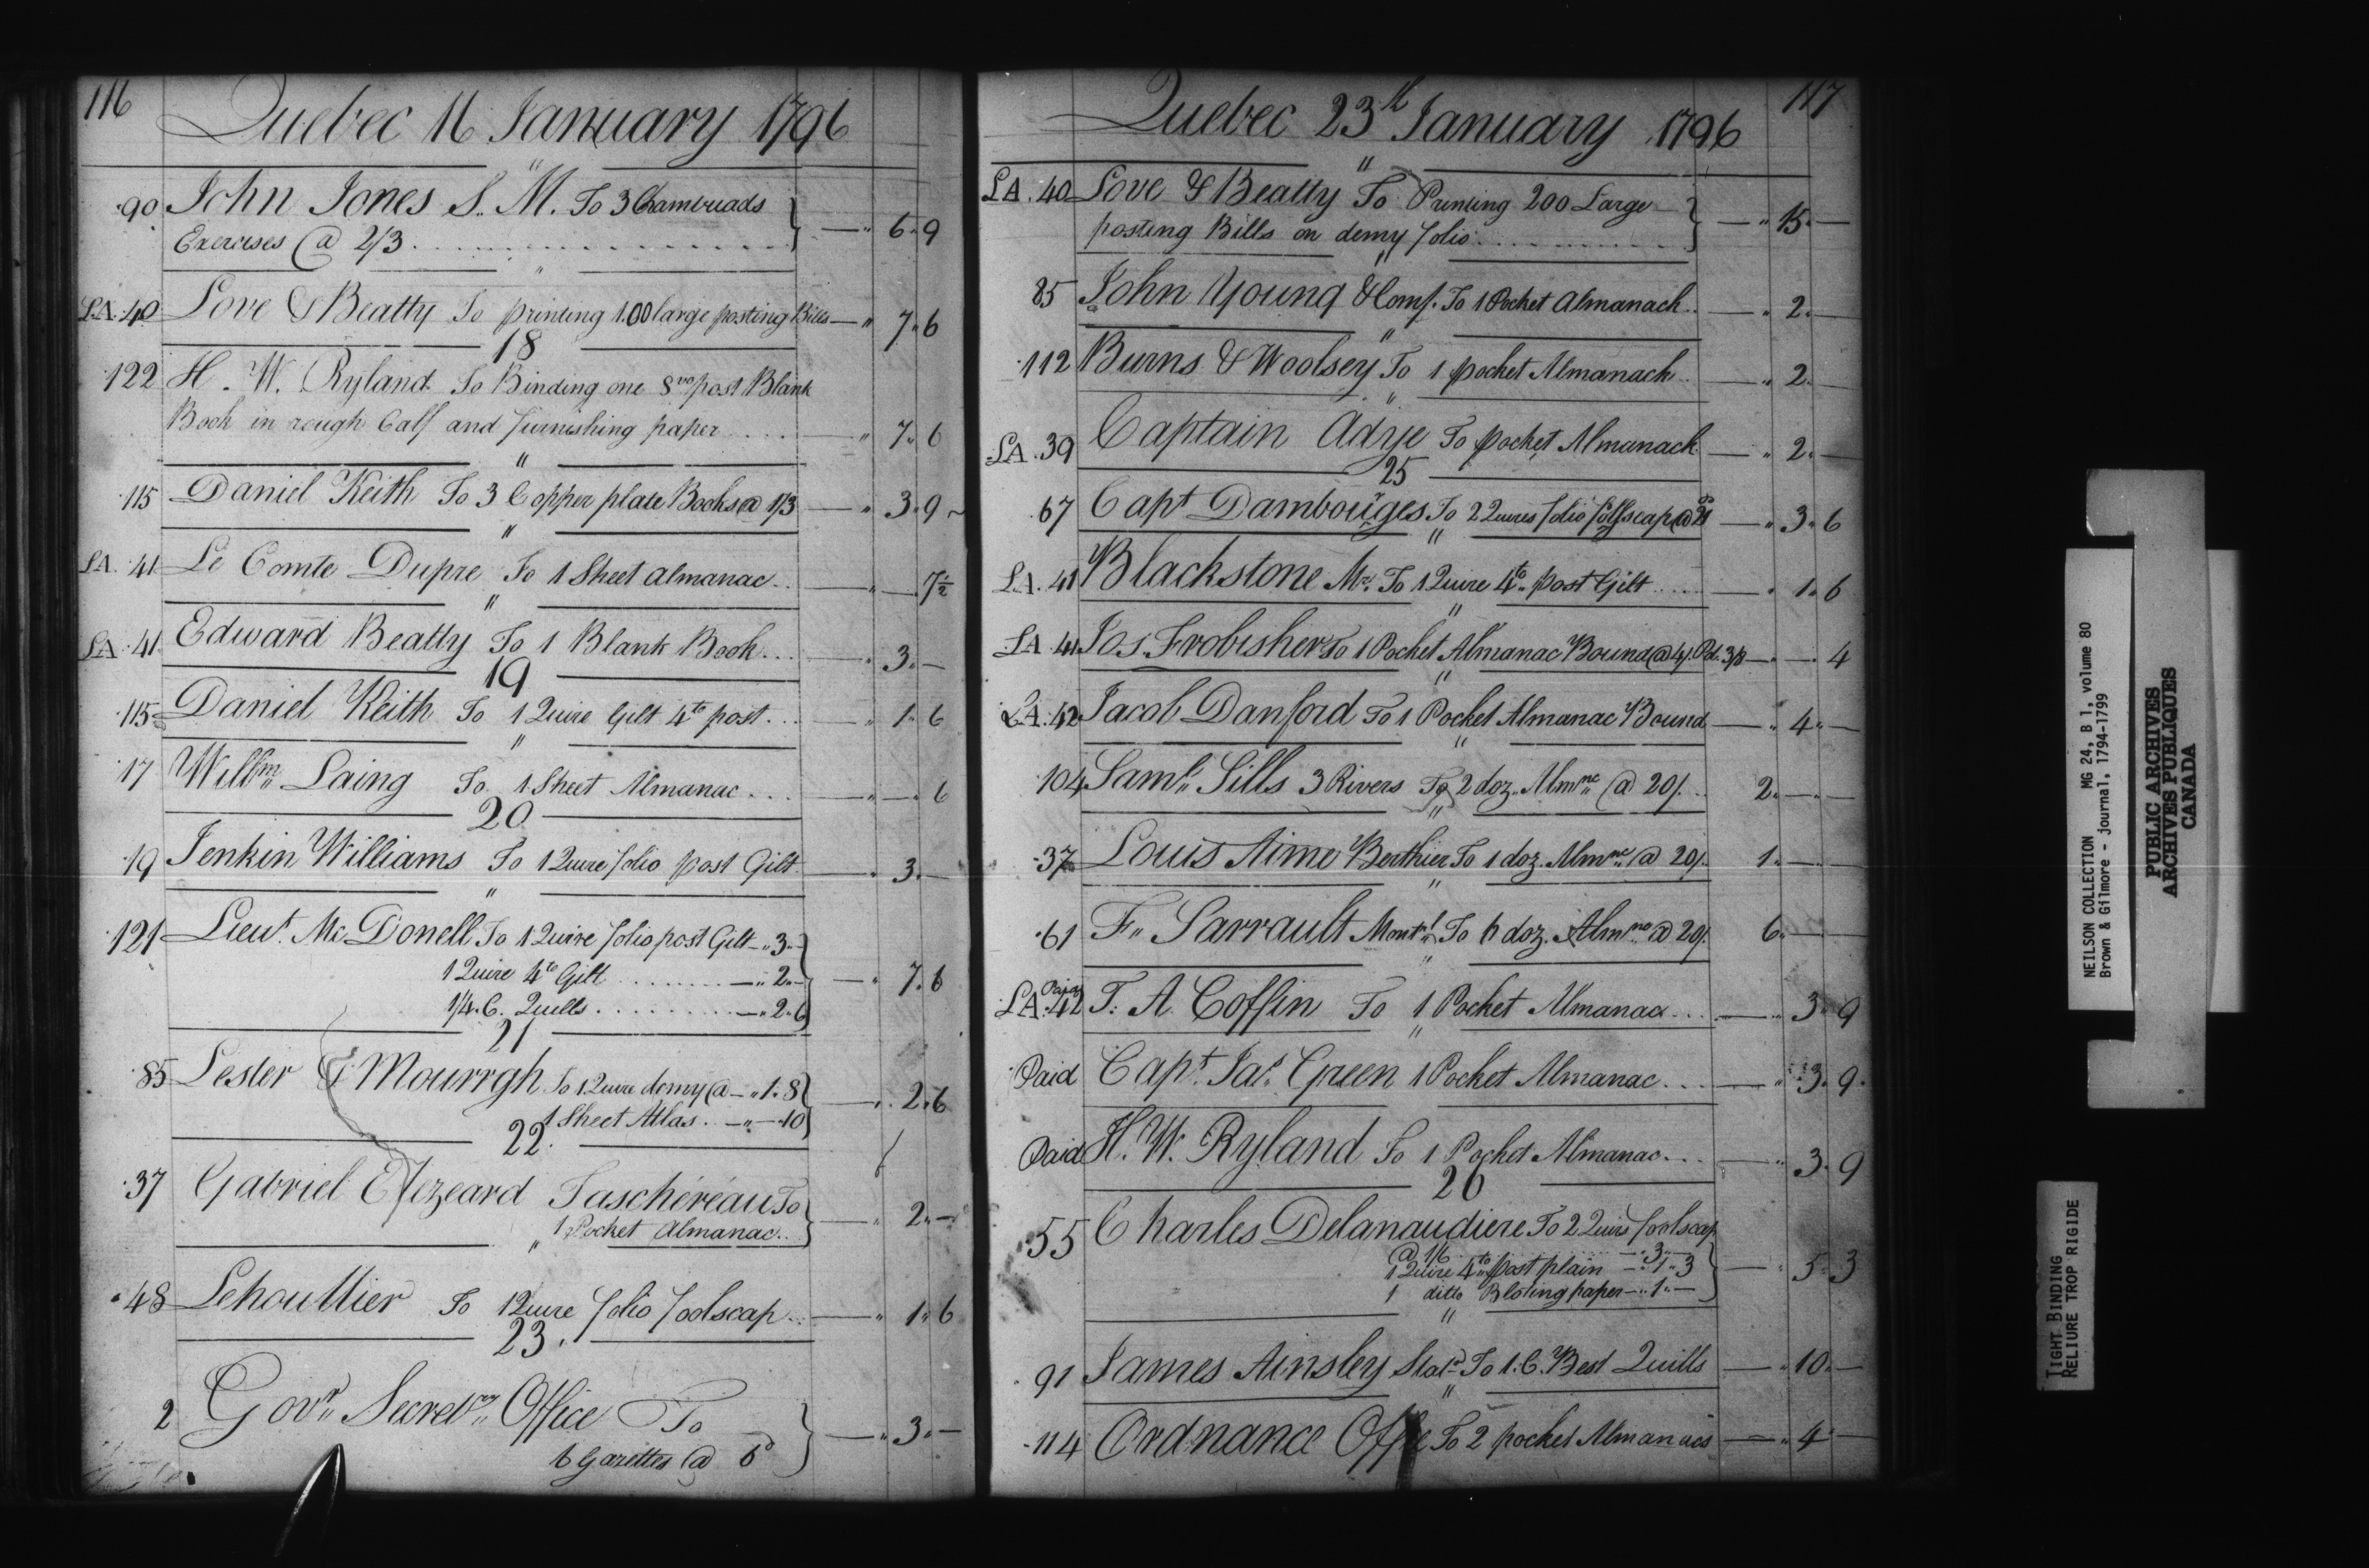 116
Quebec 16 January 1796
"
90 John Jones S. M. To 3 Chambuads
Exercises @ 2/3 — " 6 " 9
"
LA. 40 Love & Beatty To printing 100 large posting Bills — " 7 " 6
18
122 H. W. Ryland To Binding one 8vo post Blank
Book in rough Calf and furnishing paper — " 7 " 6
"
115 Daniel Keith To 3 Copper plate Books @ 1/3 — " 3 " 9
"
LA. 41 Le Comte Dupre To 1 Sheet almanac — " — " 7½
"
LA. 41 Edward Beatty To 1 Blank Book — " 3 " —
19
115 Daniel Keith To 1 Quire Gilt 4to post — " 1 " 6
"
17 Willm Laing To 1 Sheet Almanac — " — " 6
20
19 Jenkin Williams To 1 Quire folio post Gilt — " 3 " —
"
121 Lieut. Mc Donell To 1 Quire folio post Gilt — " 3 " —
1 Quire 4to Gilt — " 2 " —
1/4 C. Quills — " 2 " 6 — " 7 " 6
21
85 Lester & Mourrgh To 1 Quire demy @ — " 1 " 8
1 Sheet Atlas — " — 10 — " 2 " 6
22
37 Gabriel Elzeard Taschéreau To
1 Pocket Almanac — " 2 " —
"
48 Lehoullier To 1 Quire folio foolscap — " 1 " 6
23
2 Govr Secrety Office To
6 Gazettes @ 6d — " 3 " —
117
Quebec 23d January 1796
"
LA. 40 Love & Beatty To Printing 200 Large
posting Bills on demy folio — " 15 " —
"
85 John Young & Comp. To 1 Pocket Almanack — " 2 " —
"
112 Burns & Woolsey To 1 pocket Almanack — " 2 " —
"
LA. 39 Captain Adye To pocket Almanack — " 2 " —
25
67 Capt Dambouges To 2 Quires folio folfscap @ — " 3 " 6
"
LA. 41 Blackstone Mr. To 1 Quire 4to post Gilt — " 1 " 6
"
LA 41 Jos. Frobisher To 1 Pocket Almanac Bound @ 4/. Pd. 3/8 — " — " 4
"
LA. 42 Jacob Danford To 1 Pocket Almanac Bound — " 4 " —
"
104 Saml. Sills 3 Rivers To 2 doz. Almnc @ 20/. 2 " — " —
"
37 Louis Aime Berthier To 1 doz. Almnc @ 20/. 1 " — " —
"
61 F. Sarrault Montrl To 6 doz. Almnc @ 20/. 6 " — " —
"
LA. 42 Paid T. A. Coffin To 1 Pocket Almanac — " 3 " 9
"
Paid Capt. Jas. Green 1 Pocket Almanac — " 3 " 9
Paid H. W. Ryland To 1 Pocket Almanac — " 3 " 9
26
55 Charles Delanaudiere To 2 Quirs foolscap
@ 1/6 — " 3 " —
1 Quire 4to post plain — " 1 " 3
1 ditto Bloting paper — " 1 " — — " 5 " 3
"
91 James Ainsley Statr To 1. C. Best Quills — " 10 " —
"
114 Ordnance Office To 2 pocket Almanacs — " 4 " —
NEILSON COLLECTION MG 24, B 1, volume 80
Brown & Gilmore - journal, 1794-1799
PUBLIC ARCHIVES
ARCHIVES PUBLIQUES
CANADA
TIGHT BINDING
RELIURE TROP RIGIDE